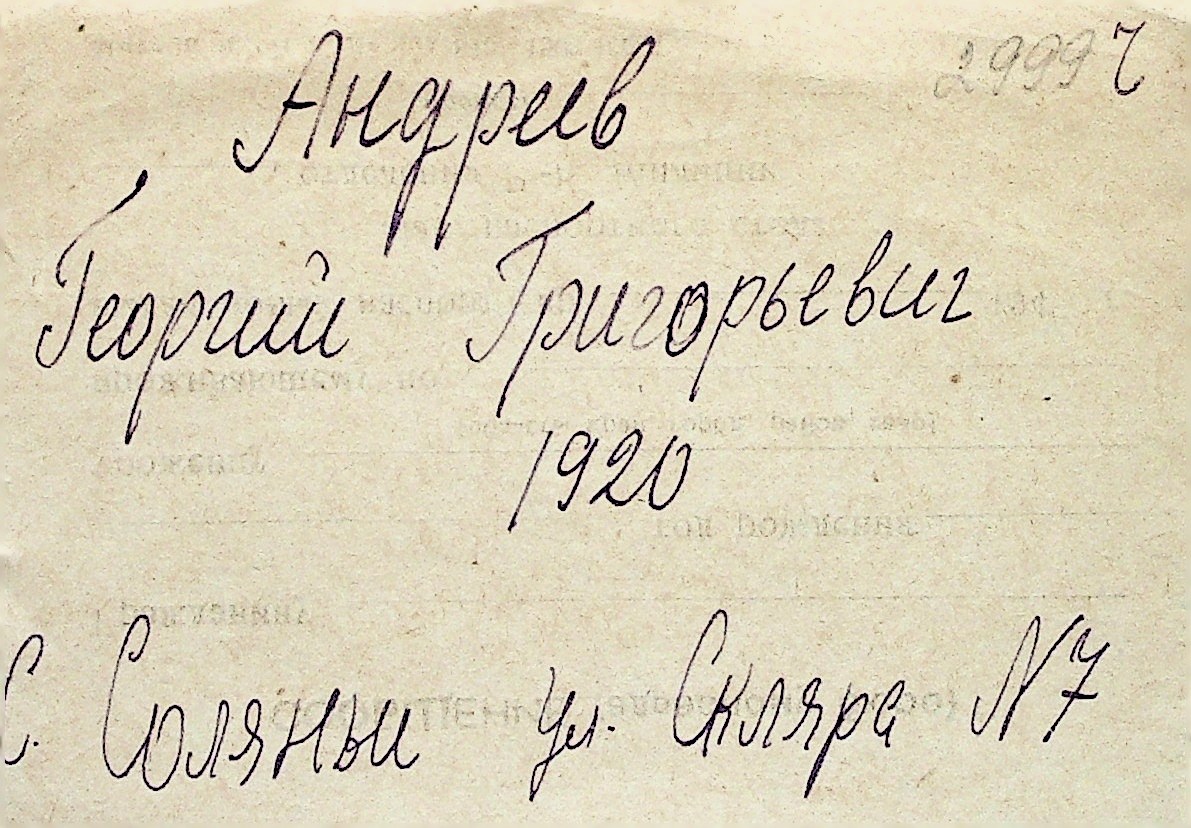 2999 ч
Андреев
Георгий Григорьевич
1920
С. Соляныи ул. Скляра N7